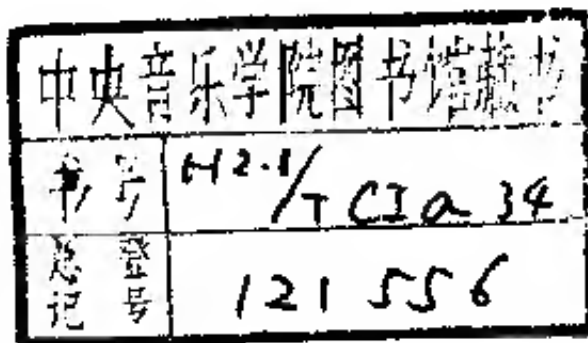 中央音乐学院图书馆藏书
书号 H2.1/TCIa34
总登记号 121556